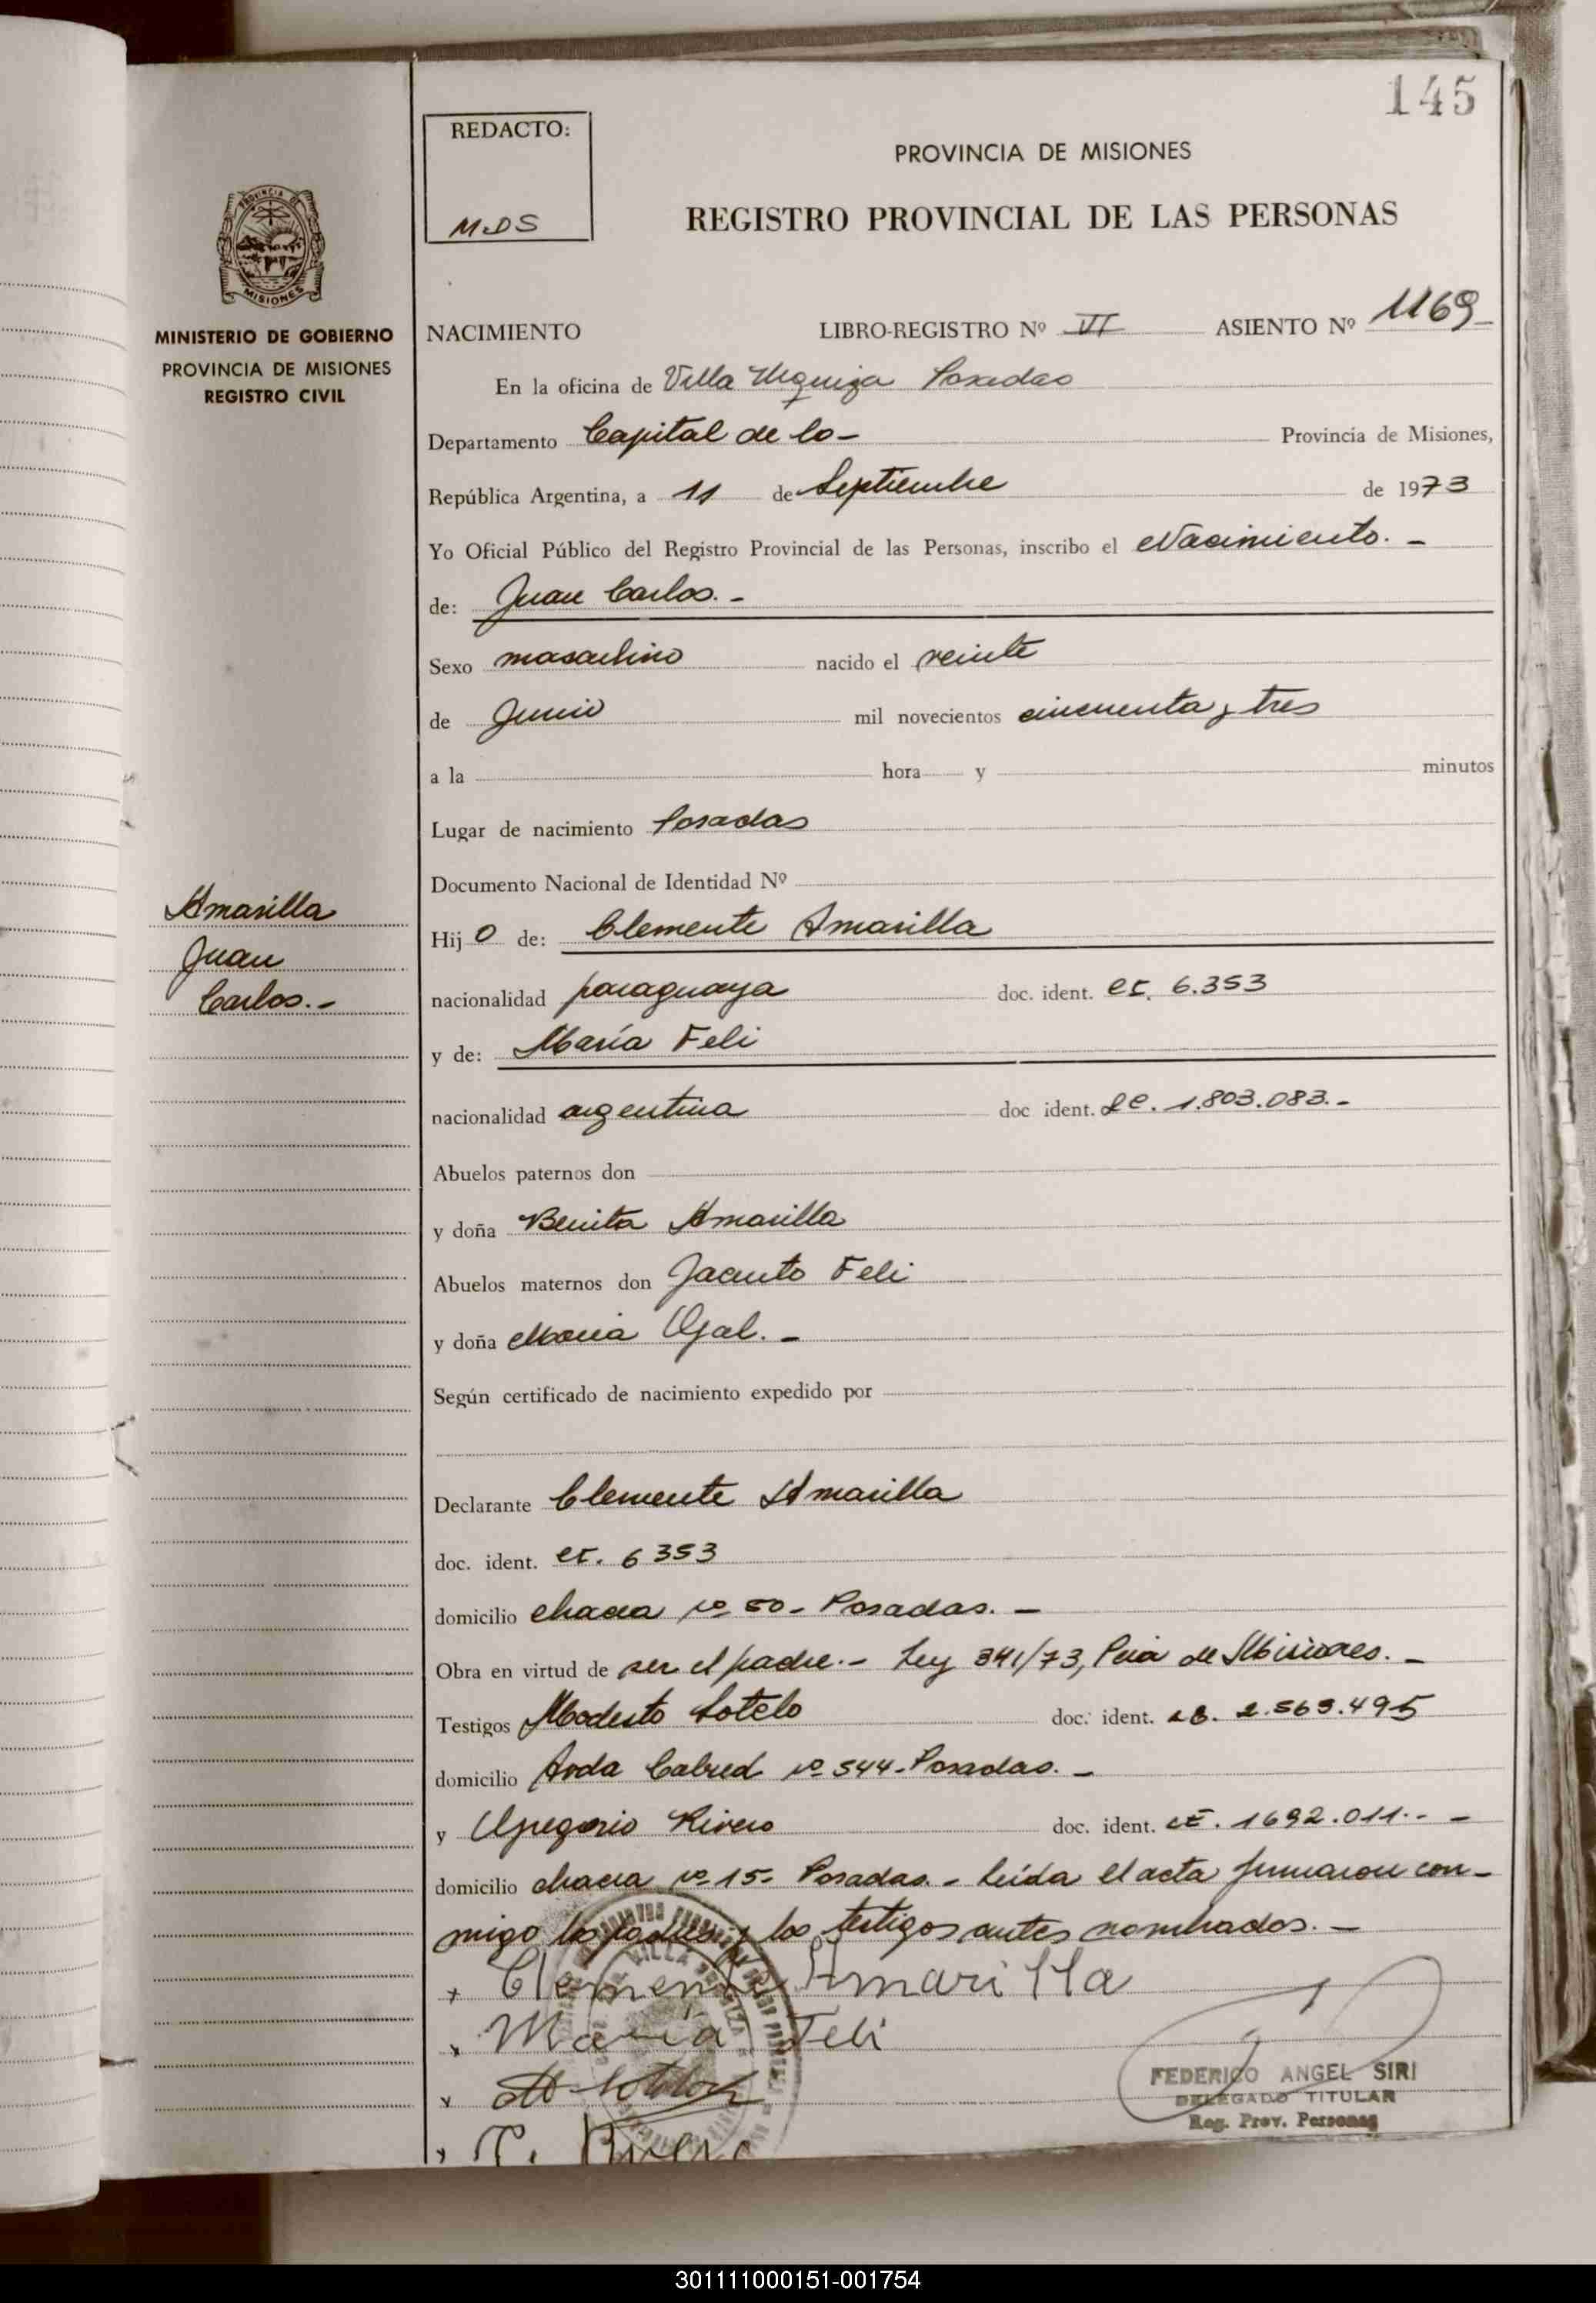 145
REDACTO:
MDS
PROVINCIA DE MISIONES
REGISTRO PROVINCIAL DE LAS PERSONAS
PROVINCIA DE
MISIONES
MINISTERIO DE GOBIERNO
PROVINCIA DE MISIONES
REGISTRO CIVIL
NACIMIENTO LIBRO-REGISTRO Nº VI ASIENTO Nº 1169
En la oficina de Villa Urquiza Posadas
Departamento Capital de la - Provincia de Misiones,
República Argentina, a 11 de Septiembre de 1973
Yo Oficial Público del Registro Provincial de las Personas, inscribo el Nacimiento. -
de: Juan Carlos. -
Sexo masculino nacido el veinte
de Junio mil novecientos cincuenta y tres
a la hora y minutos
Lugar de nacimiento Posadas
Documento Nacional de Identidad Nº
Amarilla
Juan
Carlos. -
Hijo de: Clemente Amarilla
nacionalidad paraguaya doc. ident. CI. 6.353
y de: María Feli
nacionalidad argentina doc ident. LC. 1.803.083. -
Abuelos paternos don
y doña Benita Amarilla
Abuelos maternos don Jacinto Feli
y doña Maria
Según certificado de nacimiento expedido por
Declarante Clemente Amarilla
doc. ident. CI. 6353
domicilio chacra nº 50 - Posadas. -
Obra en virtud de ser el padre. - Ley 341/73, Pcia de Misiones. -
Testigos Modesto Sotelo doc. ident. 2.563.495
domicilio Avda Cabred nº 544 - Posadas. -
y Gregorio Rivero doc. ident. 1692.011. - -
domicilio chacra nº 15 - Posadas. - Leída el acta firmaron con-
migo los padres y los testigos antes nombrados. -
x Clemente Amarilla
x María Feli
x
x
FEDERICO ANGEL SIRI
DELEGADO TITULAR
Reg. Prov. Personas
301111000151-001754